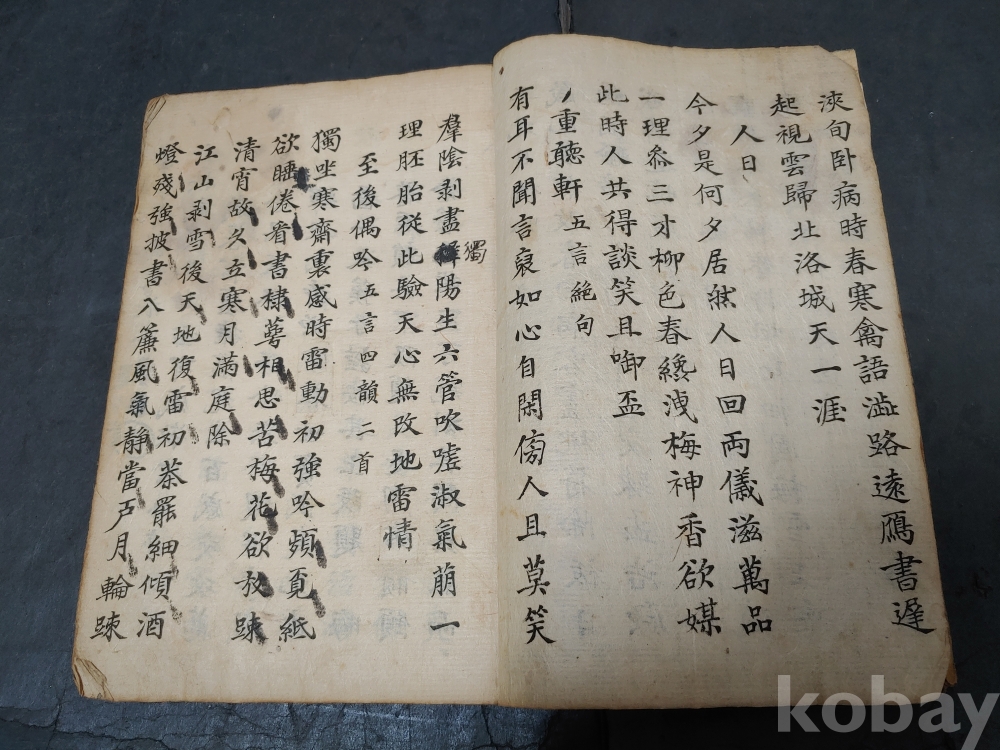 浹旬卧病時春寒禽語澁路遠鴈書遲
起視雲歸北洛城天一涯
人日
今夕是何夕居然人日回兩儀滋萬品
一理叅三才柳色春纔洩梅神香欲媒
此時人共得談笑且啣盃
重聽軒 五言絶句
有耳不聞言裒如心自閑傍人且莫笑
羣陰剥盡獨陽生六管吹噓淑氣萠一
理胚胎從此驗天心無改地雷情
至後偶吟 五言四韻二首
獨坐寒齋裏感時雷動初強吟頻覓紙
欲睡倦看書棣萼相思苦梅花欲放踈
清宵故久立寒月滿庭除
江山剥雪後天地復雷初茶罷細傾酒
燈殘強披書入簾風氣静當戶月輪踈
kobay